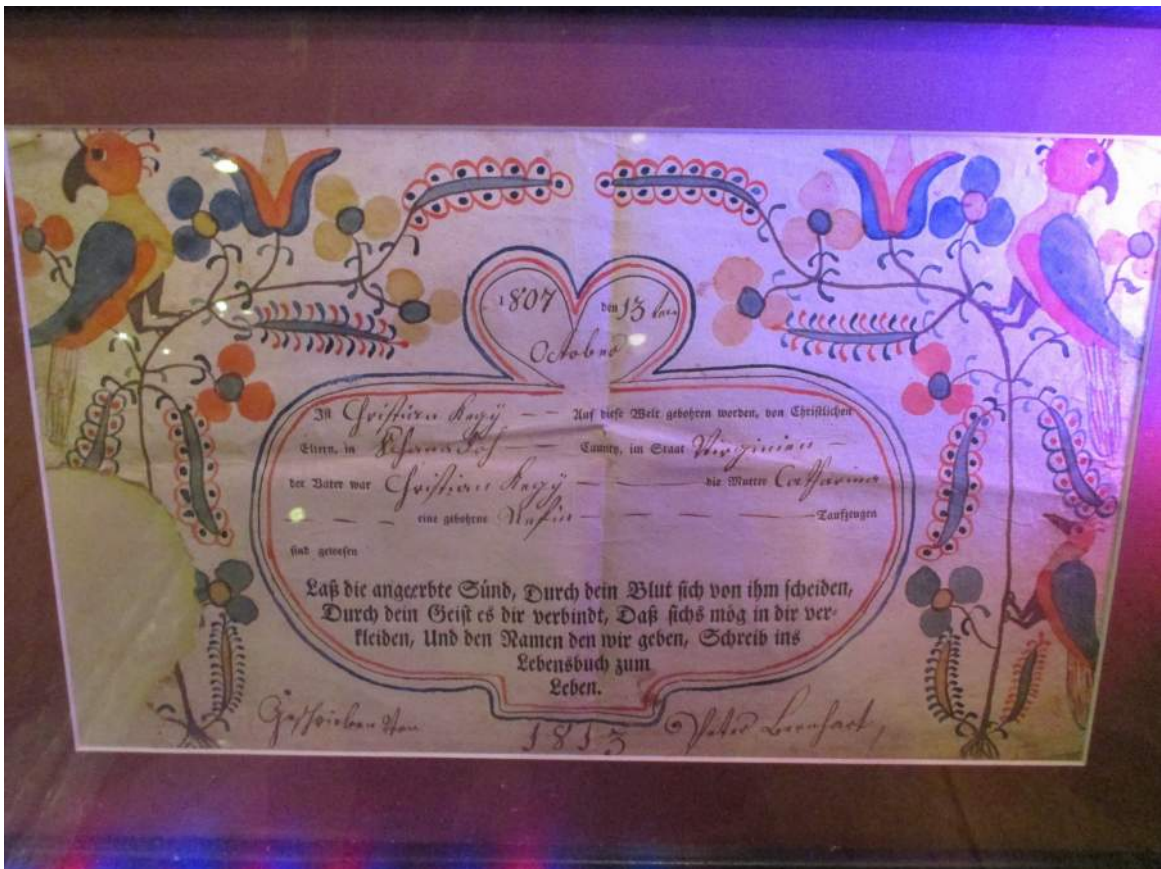 1807 den 13ten
October
Ist Christian Kegÿ Auf diese Welt gebohren worden, von Christlichen
Eltern, in Schanadoh Caunty, im Staat Virginien
der Vater war Christian Kegÿ die Mutter Catharina
eine gebohrne Nefin Taufzeugen
sind gewesen
Laß die angeerbte Sünd, Durch dein Blut sich von ihm scheiden,
Durch dein Geist es dir verbindt, Daß sichs mög in dir ver-
kleiden, Und den Namen den wir geben, Schreib ins
Lebensbuch zum
Leben.
Geschrieben Von 1813 Peter Bernhart,